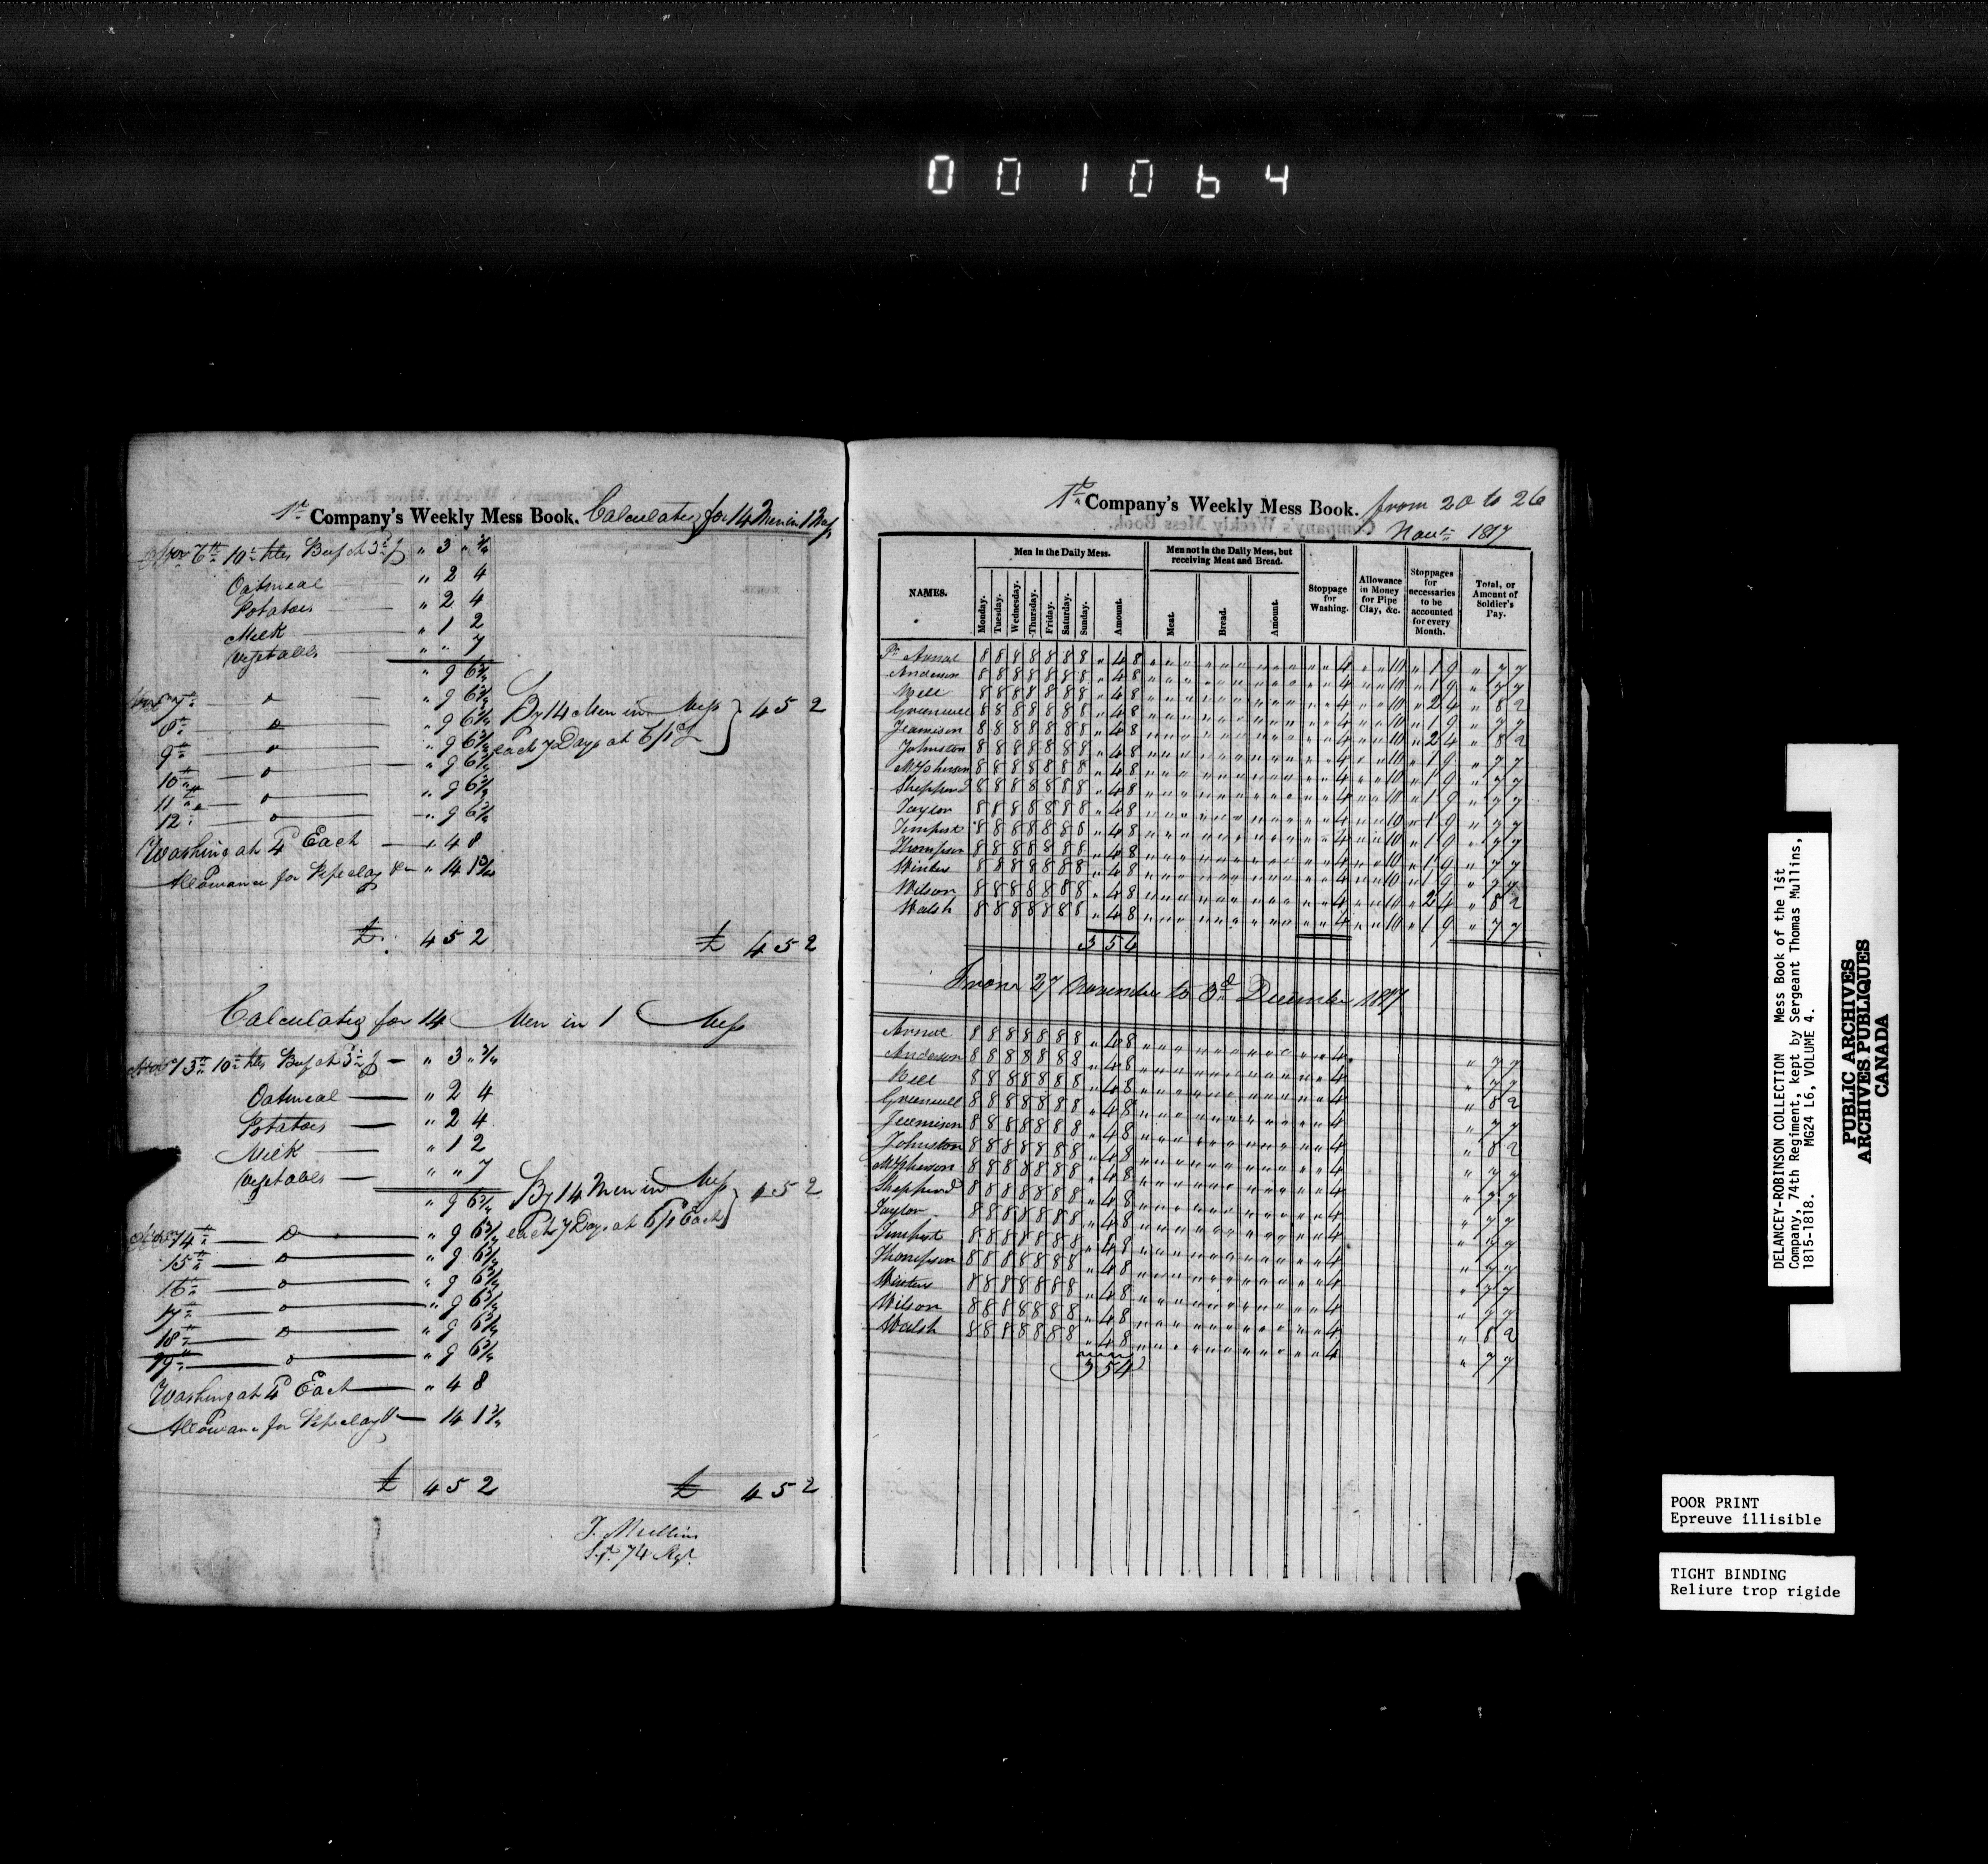 001064
1st Company's Weekly Mess Book. Calculating for 14 Men in 1 Mess
Novr 6th 10 lbs Beef at 3 „ 3 „ 3/4
Oatmeal — „ 2 4
Potatoes — „ 2 4
Milk — „ 1 2
Vegetables — „ „ 7
„ 9 6 3/4
Novr 7th — Do — „ 9 6 3/4
8th — Do — „ 9 6 3/4
9th — Do — „ 9 6 3/4
10th — Do — „ 9 6 3/4
11th — Do — „ 9 6 3/4
12th — Do — „ 9 6 3/4
By 14 Men in Mess
each 7 Days at 6/1 } 4 5 2
Washing at 4d Each — „ 4 8
Allowance for Pipeclay &c „ 14 1 3/4
£ 4 5 2 £ 4 5 2
Calculating for 14 Men in 1 Mess
Novr 13th 10 lbs Beef at 3 — „ 3 „ 3/4
Oatmeal — „ 2 4
Potatoes — „ 2 4
Milk — „ 1 2
Vegetables — „ „ 7
„ 9 6 3/4
By 14 Men in Mess
each 7 Days at 6/1 Each } 4 5 2
Novr 14th — Do — „ 9 6 3/4
15th — Do — „ 9 6 3/4
16th — Do — „ 9 6 3/4
17th — Do — „ 9 6 3/4
18th — Do — „ 9 6 3/4
19th — Do — „ 9 6 3/4
Washing at 4d Each — „ 4 8
Allowance for Pipeclay &c — 14 1 3/4
£ 4 5 2 £ 4 5 2
T. Mullins
Sjt. 74 Rgt.
1st Company's Weekly Mess Book. from 20 to 26
Novr 1817
NAMES.
Men in the Daily Mess.
Monday. Tuesday. Wednesday. Thursday. Friday. Saturday. Sunday. Amount.
Men not in the Daily Mess, but receiving Meat and Bread.
Meat. Bread. Amount.
Stoppage for Washing.
Allowance in Money for Pipe Clay, &c.
Stoppages for necessaries to be accounted for every Month.
Total, or Amount of Soldier's Pay.
8 8 8 8 8 8 8 „ 4 8 „ „ „ „ „ „ „ „ „ „ „ 4 „ „ 10 „ 1 9 „ 7 7
Anderson 8 8 8 8 8 8 8 „ 4 8 „ „ „ „ „ „ „ „ „ „ „ 4 „ „ 10 „ 1 9 „ 7 7
8 8 8 8 8 8 8 „ 4 8 „ „ „ „ „ „ „ „ „ „ „ 4 „ „ 10 „ 2 4 „ 8 2
Greenwell 8 8 8 8 8 8 8 „ 4 8 „ „ „ „ „ „ „ „ „ „ „ 4 „ „ 10 „ 1 9 „ 7 7
Jeamison 8 8 8 8 8 8 8 „ 4 8 „ „ „ „ „ „ „ „ „ „ „ 4 „ „ 10 „ 2 4 „ 8 2
Johnston 8 8 8 8 8 8 8 „ 4 8 „ „ „ „ „ „ „ „ „ „ „ 4 „ „ 10 „ 1 9 „ 7 7
McPherson 8 8 8 8 8 8 8 „ 4 8 „ „ „ „ „ „ „ „ „ „ „ 4 „ „ 10 „ 1 9 „ 7 7
Shepherd 8 8 8 8 8 8 8 „ 4 8 „ „ „ „ „ „ „ „ „ „ „ 4 „ „ 10 „ 1 9 „ 7 7
Taylor 8 8 8 8 8 8 8 „ 4 8 „ „ „ „ „ „ „ „ „ „ „ 4 „ „ 10 „ 1 9 „ 7 7
Tempest 8 8 8 8 8 8 8 „ 4 8 „ „ „ „ „ „ „ „ „ „ „ 4 „ „ 10 „ 1 9 „ 7 7
Thompson 8 8 8 8 8 8 8 „ 4 8 „ „ „ „ „ „ „ „ „ „ „ 4 „ „ 10 „ 1 9 „ 7 7
Winters 8 8 8 8 8 8 8 „ 4 8 „ „ „ „ „ „ „ „ „ „ „ 4 „ „ 10 „ 1 9 „ 7 7
Wilson 8 8 8 8 8 8 8 „ 4 8 „ „ „ „ „ „ „ „ „ „ „ 4 „ „ 10 „ 2 4 „ 8 2
Walsh 8 8 8 8 8 8 8 „ 4 8 „ „ „ „ „ „ „ „ „ „ „ 4 „ „ 10 „ 1 9 „ 7 7
3 5 4
From 27 November to 3d December 1817
8 8 8 8 8 8 8 „ 4 8 „ „ „ „ „ „ „ „ „ „ „ 4 „ 7 7
Anderson 8 8 8 8 8 8 8 „ 4 8 „ „ „ „ „ „ „ „ „ „ „ 4 „ 7 7
8 8 8 8 8 8 8 „ 4 8 „ „ „ „ „ „ „ „ „ „ „ 4 „ 8 2
Greenwell 8 8 8 8 8 8 8 „ 4 8 „ „ „ „ „ „ „ „ „ „ „ 4 „ 7 7
Jeamison 8 8 8 8 8 8 8 „ 4 8 „ „ „ „ „ „ „ „ „ „ „ 4 „ 8 2
Johnston 8 8 8 8 8 8 8 „ 4 8 „ „ „ „ „ „ „ „ „ „ „ 4 „ 7 7
McPherson 8 8 8 8 8 8 8 „ 4 8 „ „ „ „ „ „ „ „ „ „ „ 4 „ 7 7
Shepherd 8 8 8 8 8 8 8 „ 4 8 „ „ „ „ „ „ „ „ „ „ „ 4 „ 7 7
Taylor 8 8 8 8 8 8 8 „ 4 8 „ „ „ „ „ „ „ „ „ „ „ 4 „ 7 7
Tempest 8 8 8 8 8 8 8 „ 4 8 „ „ „ „ „ „ „ „ „ „ „ 4 „ 7 7
Thompson 8 8 8 8 8 8 8 „ 4 8 „ „ „ „ „ „ „ „ „ „ „ 4 „ 7 7
Winters 8 8 8 8 8 8 8 „ 4 8 „ „ „ „ „ „ „ „ „ „ „ 4 „ 7 7
Wilson 8 8 8 8 8 8 8 „ 4 8 „ „ „ „ „ „ „ „ „ „ „ 4 „ 8 2
Walsh 8 8 8 8 8 8 8 „ 4 8 „ „ „ „ „ „ „ „ „ „ „ 4 „ 7 7
3 5 4
DELANCEY-ROBINSON COLLECTION Mess Book of the 1st
Company, 74th Regiment, kept by Sergeant Thomas Mullins,
1815-1818. MG24 L6, VOLUME 4.
PUBLIC ARCHIVES
ARCHIVES PUBLIQUES
CANADA
POOR PRINT
Epreuve illisible
TIGHT BINDING
Reliure trop rigide